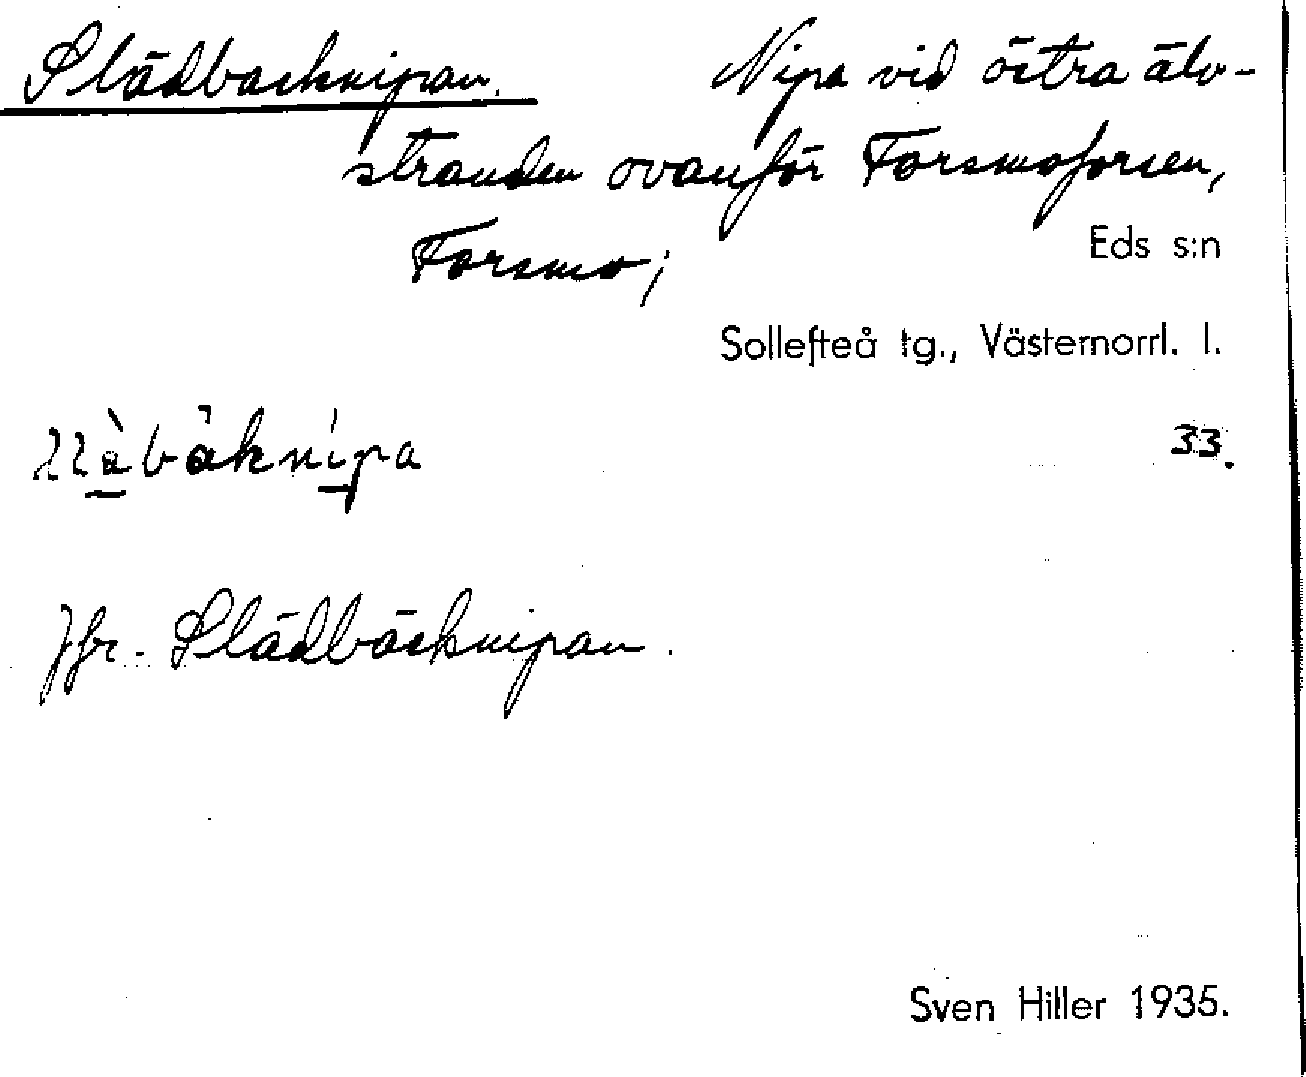 Slädbacknipan. Nipa vid östra älv-
stranden ovanför Forsmoforsen,
Forsmo;
Eds s:n
Sollefteå tg., Västernorrl. l.
33.
Jfr. Slädbäcknipan.
Sven Hiller 1935.